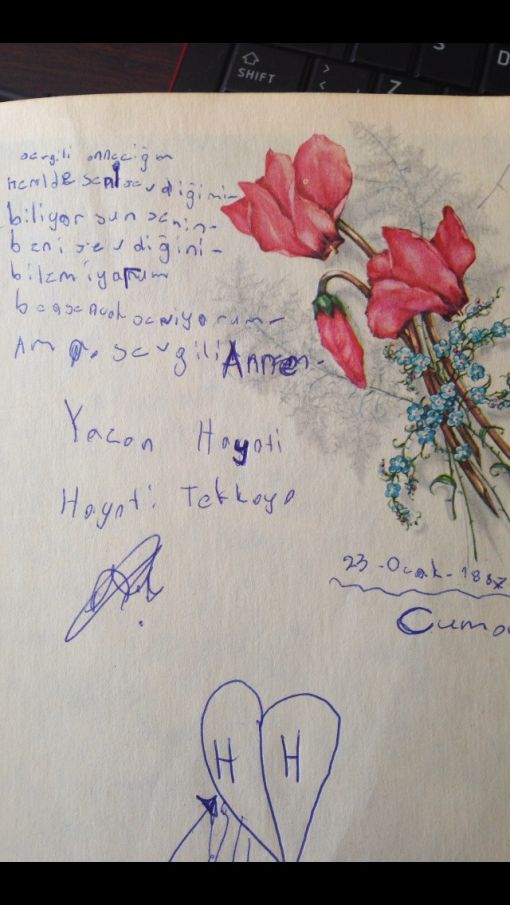 SHIFT
Z
S
D
sevgili annaciğım
herhlde seni sevdiğimi-
biliyor sun senin-
beni sevdiğini-
bilemiyorum
ben seviyorum-
Ama. sevgili Annem-
Yazan Hayati
Hayati Tekkaya
23-Ocak-1987
Cuma
H H